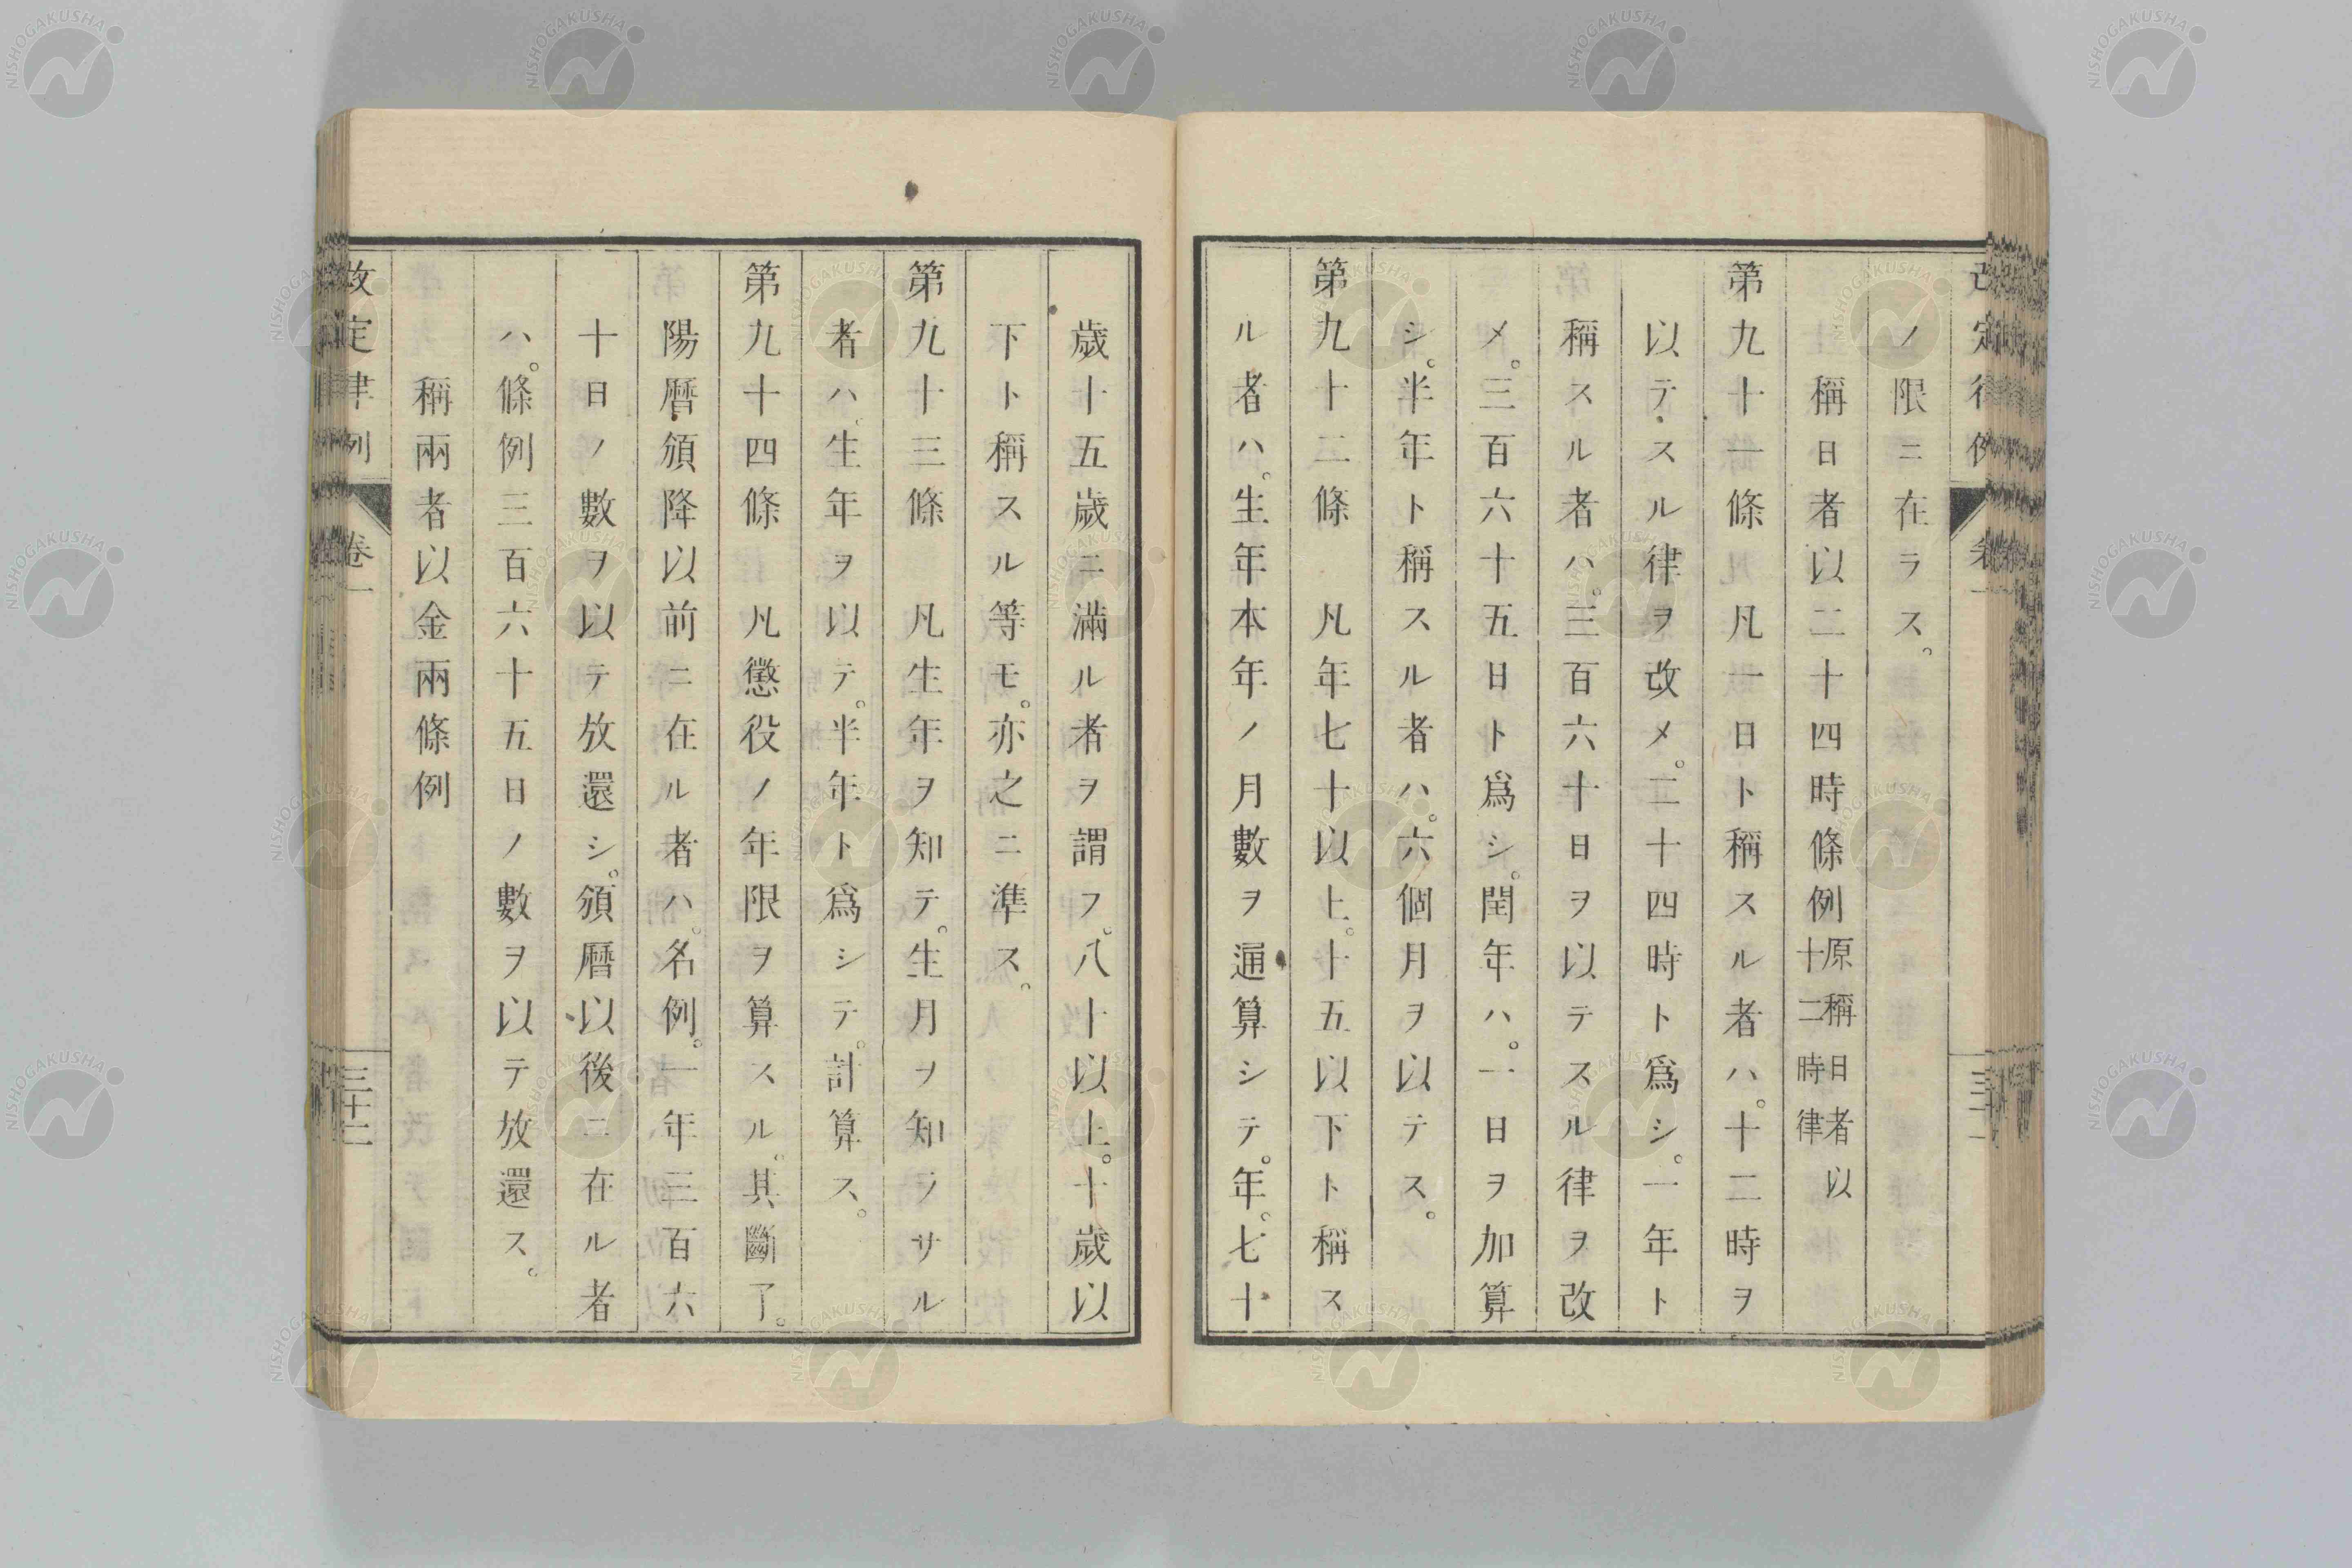 ノ限ニ在ラス。
稱日者以二十四時條例 原稱日者以十二時律
第九十一條 凡一日ト稱スル者ハ。十二時ヲ
以テスル律ヲ改メ。二十四時ト爲シ。一年ト
稱スル者ハ。三百六十日ヲ以テスル律ヲ改
メ。三百六十五日ト爲シ。閏年ハ。一日ヲ加算
シ。半年ト稱スル者ハ。六個月ヲ以テス。
第九十二條 凡年七十以上。十五以下ト稱ス
ル者ハ。生年本年ノ月數ヲ通算シテ。年。七十
歲十五歲ニ滿ル者ヲ謂フ。八十以上。十歲以
下ト稱スル等モ。亦之ニ準ス。
第九十三條 凡生年ヲ知テ。生月ヲ知ラサル
者ハ。生年ヲ以テ。半年ト爲シテ。計算ス。
第九十四條 凡懲役ノ年限ヲ算スル。其斷了。
陽曆頒降以前ニ在ル者ハ。名例。一年三百六
十日ノ數ヲ以テ放還シ。頒曆以後ニ在ル者
ハ。條例三百六十五日ノ數ヲ以テ放還ス。
稱兩者以金兩條例
改定律例 卷一 三十二
NISHOGAKUSHA